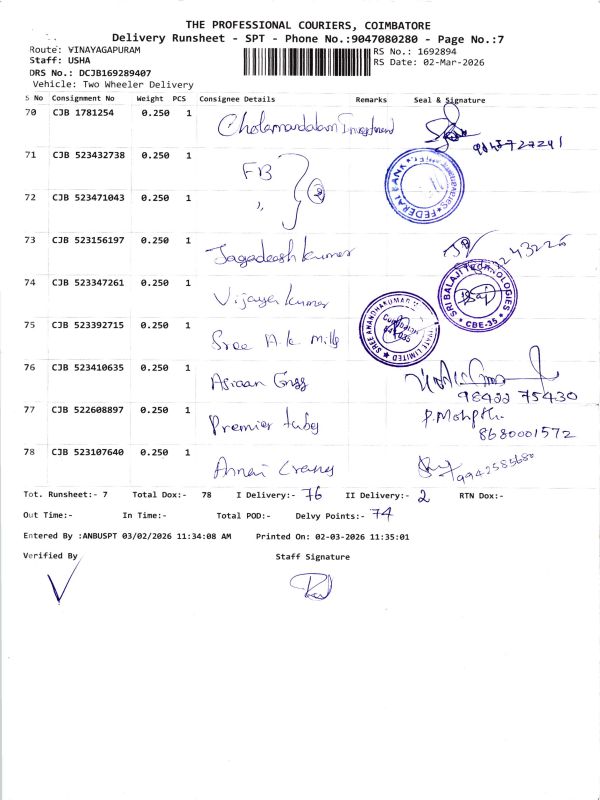 THE PROFESSIONAL COURIERS, COIMBATORE
Delivery Runsheet - SPT - Phone No.:9047080280 - Page No.:7
Route: VINAYAGAPURAM
RS No.: 1692894
Staff: USHA
RS Date: 02-Mar-2026
DRS No.: DCJB169289407
Vehicle: Two Wheeler Delivery
S No Consignment No Weight PCS Consignee Details Remarks Seal & Signature
70 CJB 1781254 0.250 1 Cholamandalam Investment
71 CJB 523432738 0.250 1 FB
FEDERAL BANK
72 CJB 523471043 0.250 1 " 2
73 CJB 523156197 0.250 1 Jagadeesh kumar
74 CJB 523347261 0.250 1 Vijaya kumar
SRI BALAJI TECHNOLOGIES
CBE-35
75 CJB 523392715 0.250 1 Sree A.k mills
SREE ANANDHAKUMAR LIMITED
76 CJB 523410635 0.250 1 Asiaan Engg
98422 75430
77 CJB 522608897 0.250 1 Premier tubes
8680001572
78 CJB 523107640 0.250 1 Annai Cranes
9942585680
Tot. Runsheet:- 7 Total Dox:- 78 I Delivery:- 76 II Delivery:- 2 RTN Dox:-
Out Time:- In Time:- Total POD:- Delvy Points:- 74
Entered By :ANBUSPT 03/02/2026 11:34:08 AM Printed On: 02-03-2026 11:35:01
Verified By Staff Signature